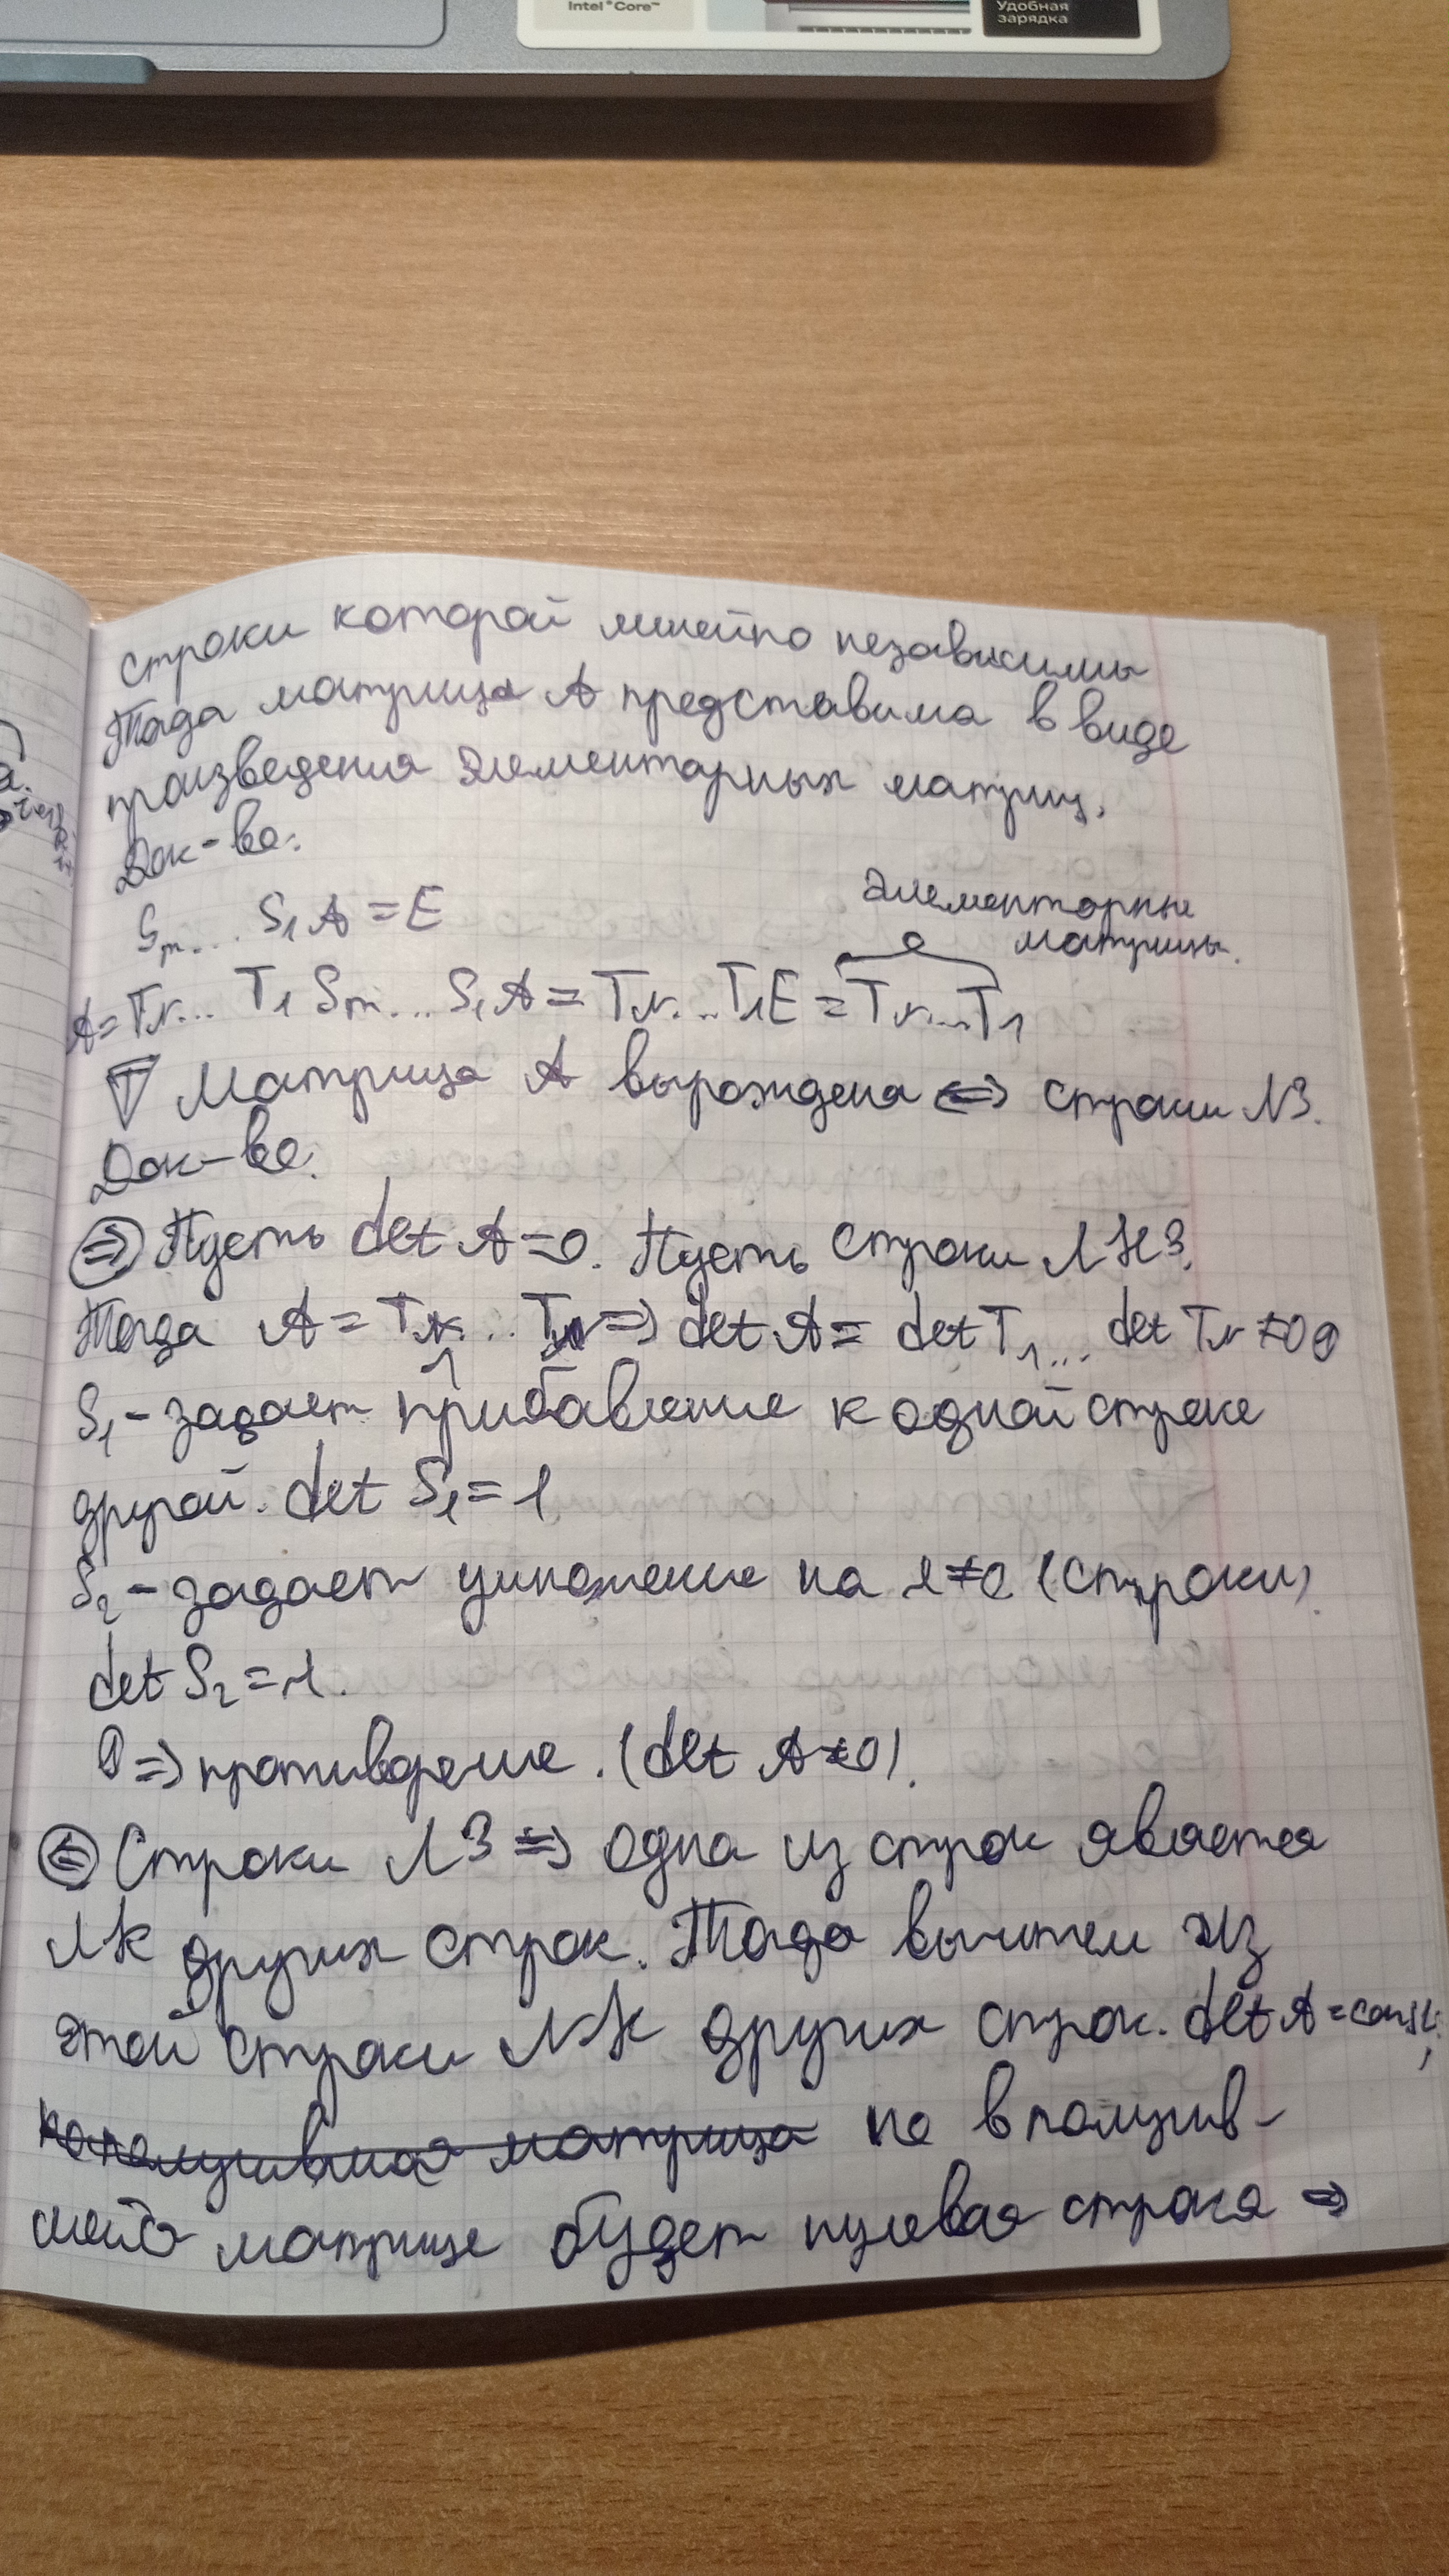 Intel® Core™
Удобная
зарядка
строки которой линейно независимы
Тогда матрица A представима в виде
произведения элементарных матриц.
Док-во:
Sₘ... S₁A = E
элементарные
матрицы.
A = Tₙ... T₁ Sₘ... S₁A = Tₙ...T₁E = Tₙ...T₁
T Матрица A вырождена <=> строки ЛЗ.
Док-во:
=> Пусть det A=0. Пусть строки ЛНЗ.
Тогда A = Tₙ... T₁ => det A = det T₁... det Tₙ ≠ 0
S₁ - задает прибавление к одной строке
другой. det S₁ = 1
S₂ - задает умножение на λ≠0 (строки).
det S₂ = λ.
=> противоречие. (det A≠0).
<= Строки ЛЗ => одна из строк является
ЛК других строк. Тогда вычтем из
этой строки ЛК других строк. det A = const,
но в получив-
шейся матрице будет нулевая строка =>